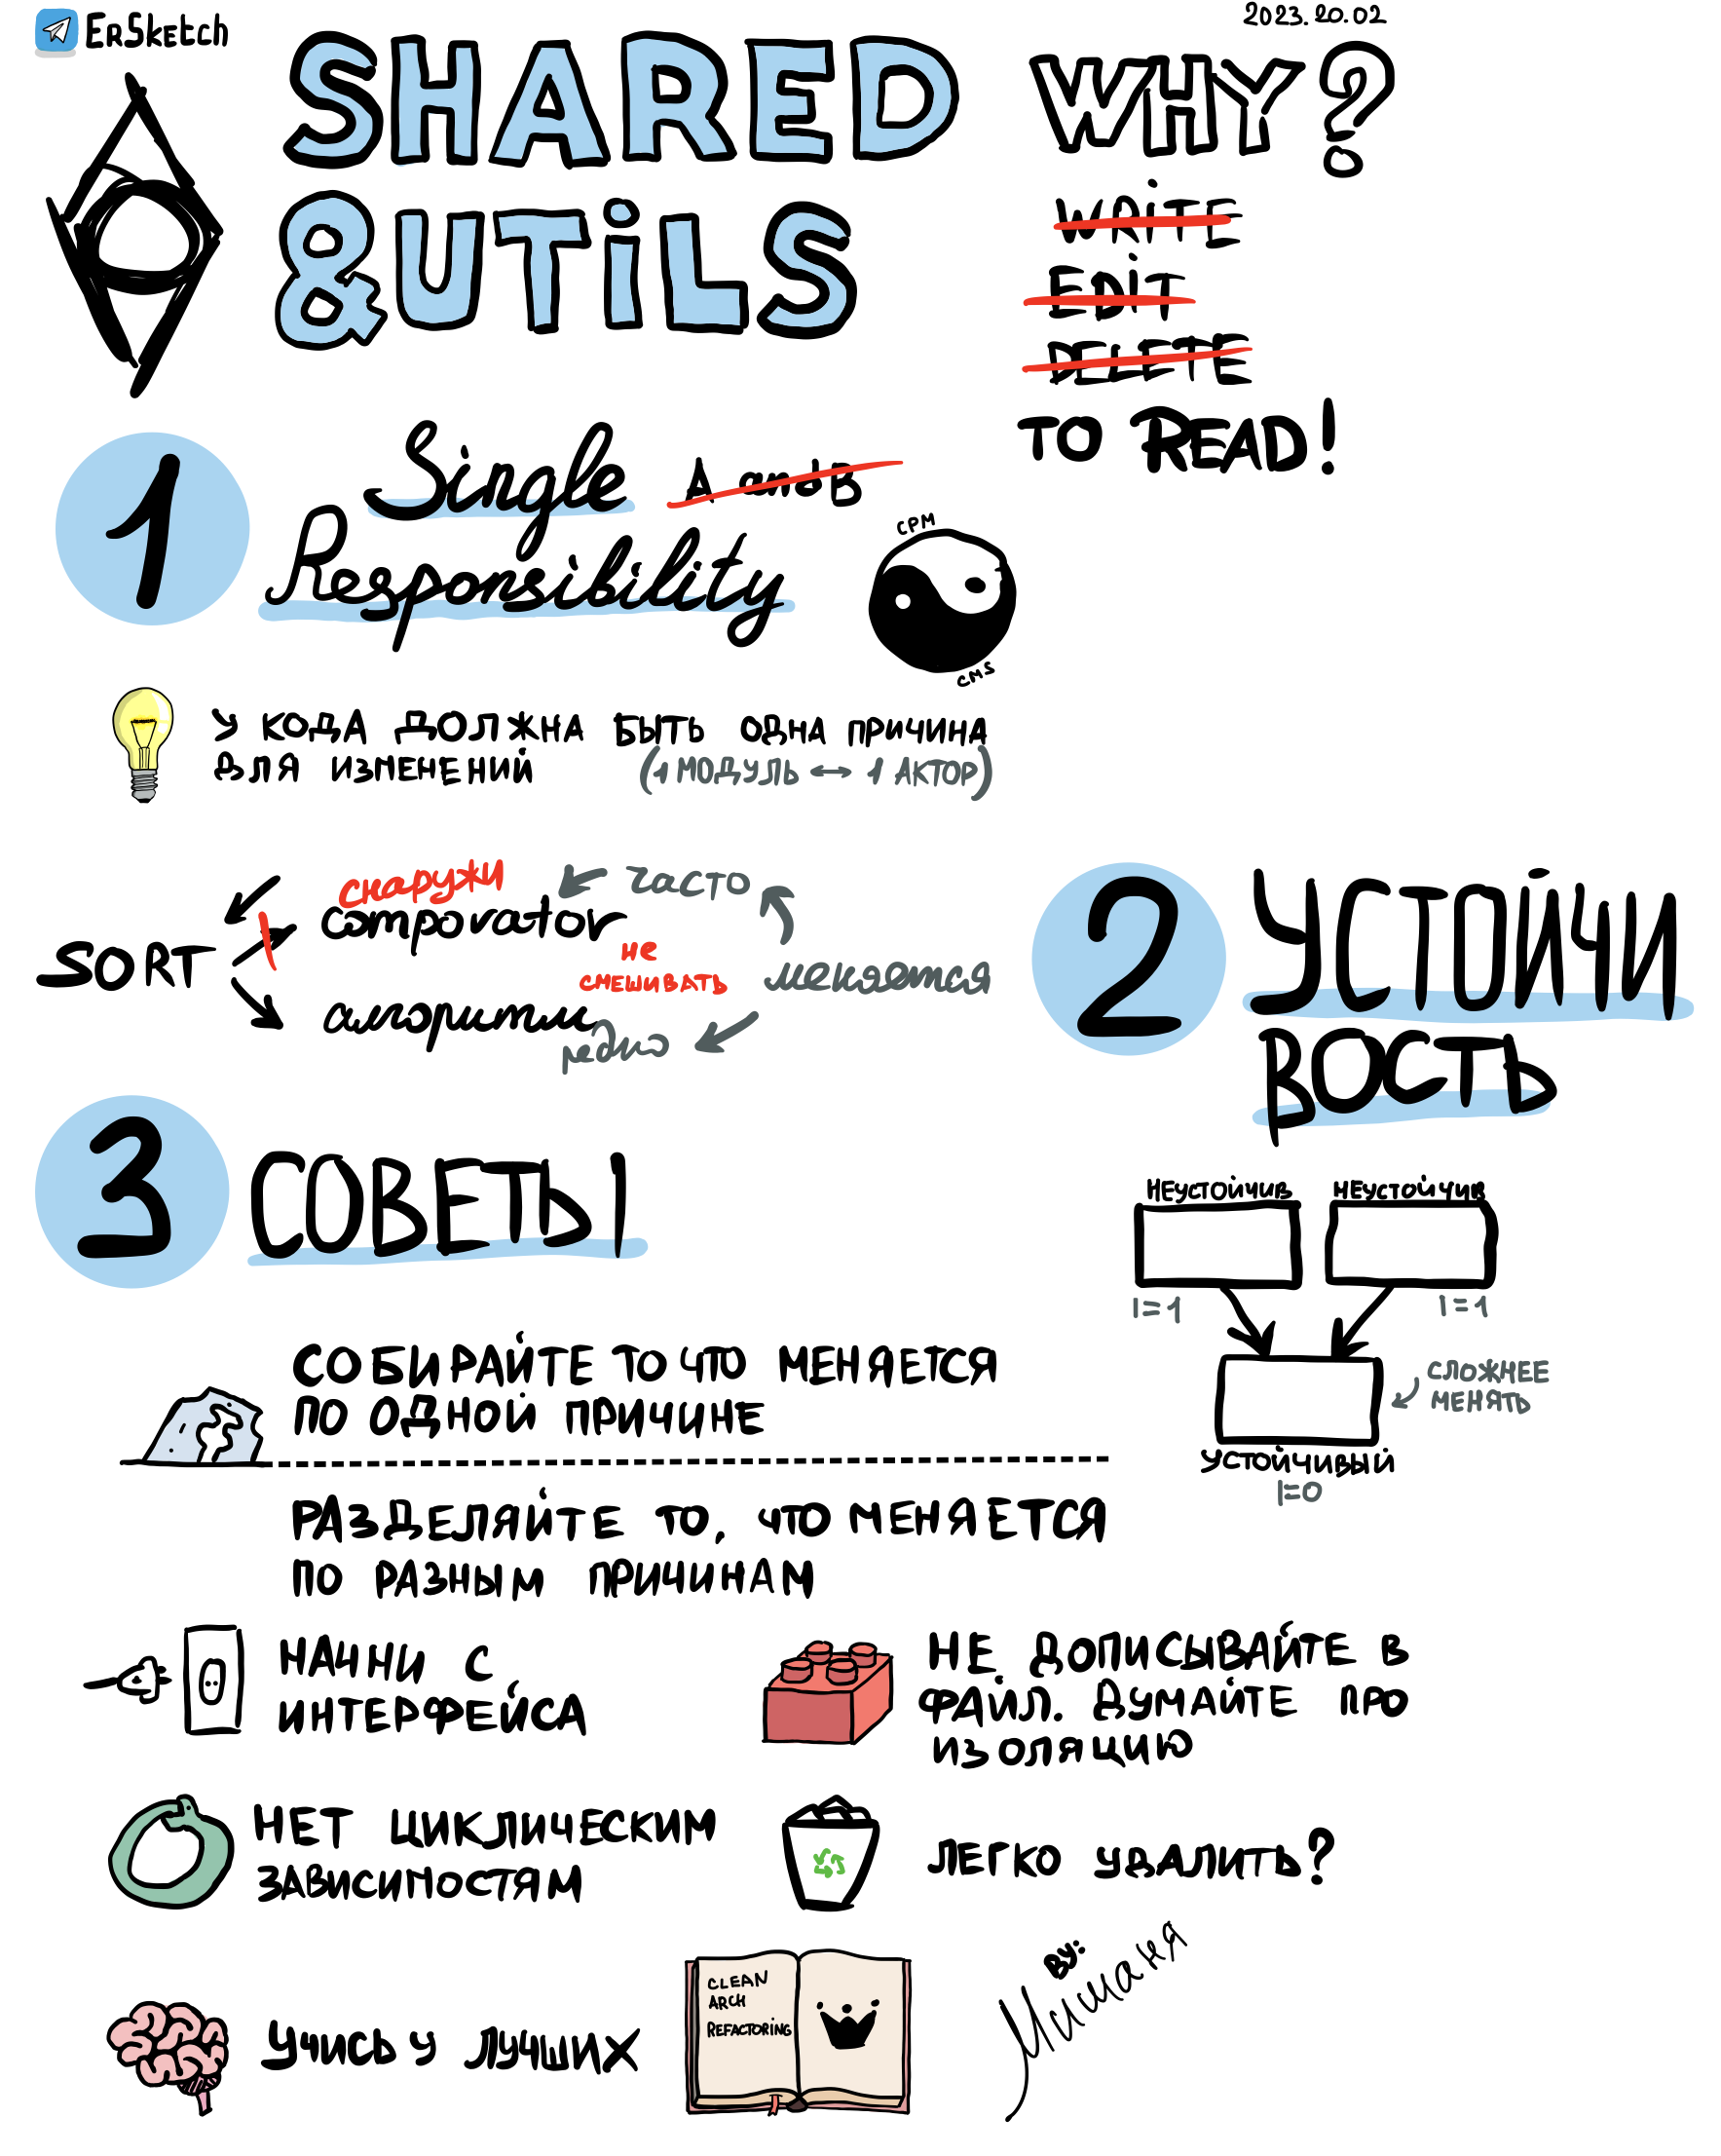 ErSketch
2023.20.02
SHARED
&UTILS
WHY?
WRITE
EDIT
DELETE
TO READ!
1
Single
A and B
Responsibility
CPM
CMS
У КОДА ДОЛЖНА БЫТЬ ОДНА ПРИЧИНА
ДЛЯ ИЗМЕНЕНИЙ
(1 МОДУЛЬ ↔ 1 АКТОР)
SORT
снаружи
comporator
часто
не
смешивать
меняется
алгоритм
редко
2
УСТОЙЧИ
ВОСТЬ
НЕУСТОЙЧИВ
НЕУСТОЙЧИВ
I=1
I=1
СЛОЖНЕЕ
МЕНЯТЬ
УСТОЙЧИВЫЙ
I=0
3
СОВЕТЫ
СОБИРАЙТЕ ТО ЧТО МЕНЯЕТСЯ
ПО ОДНОЙ ПРИЧИНЕ
РАЗДЕЛЯЙТЕ ТО, ЧТО МЕНЯЕТСЯ
ПО РАЗНЫМ ПРИЧИНАМ
НАЧНИ С
ИНТЕРФЕЙСА
НЕ ДОПИСЫВАЙТЕ В
ФАЙЛ. ДУМАЙТЕ ПРО
ИЗОЛЯЦИЮ
НЕТ ЦИКЛИЧЕСКИМ
ЗАВИСИМОСТЯМ
ЛЕГКО УДАЛИТЬ?
УЧИСЬ У ЛУЧШИХ
CLEAN
ARCH
REFACTORING
BY:
Мишаня